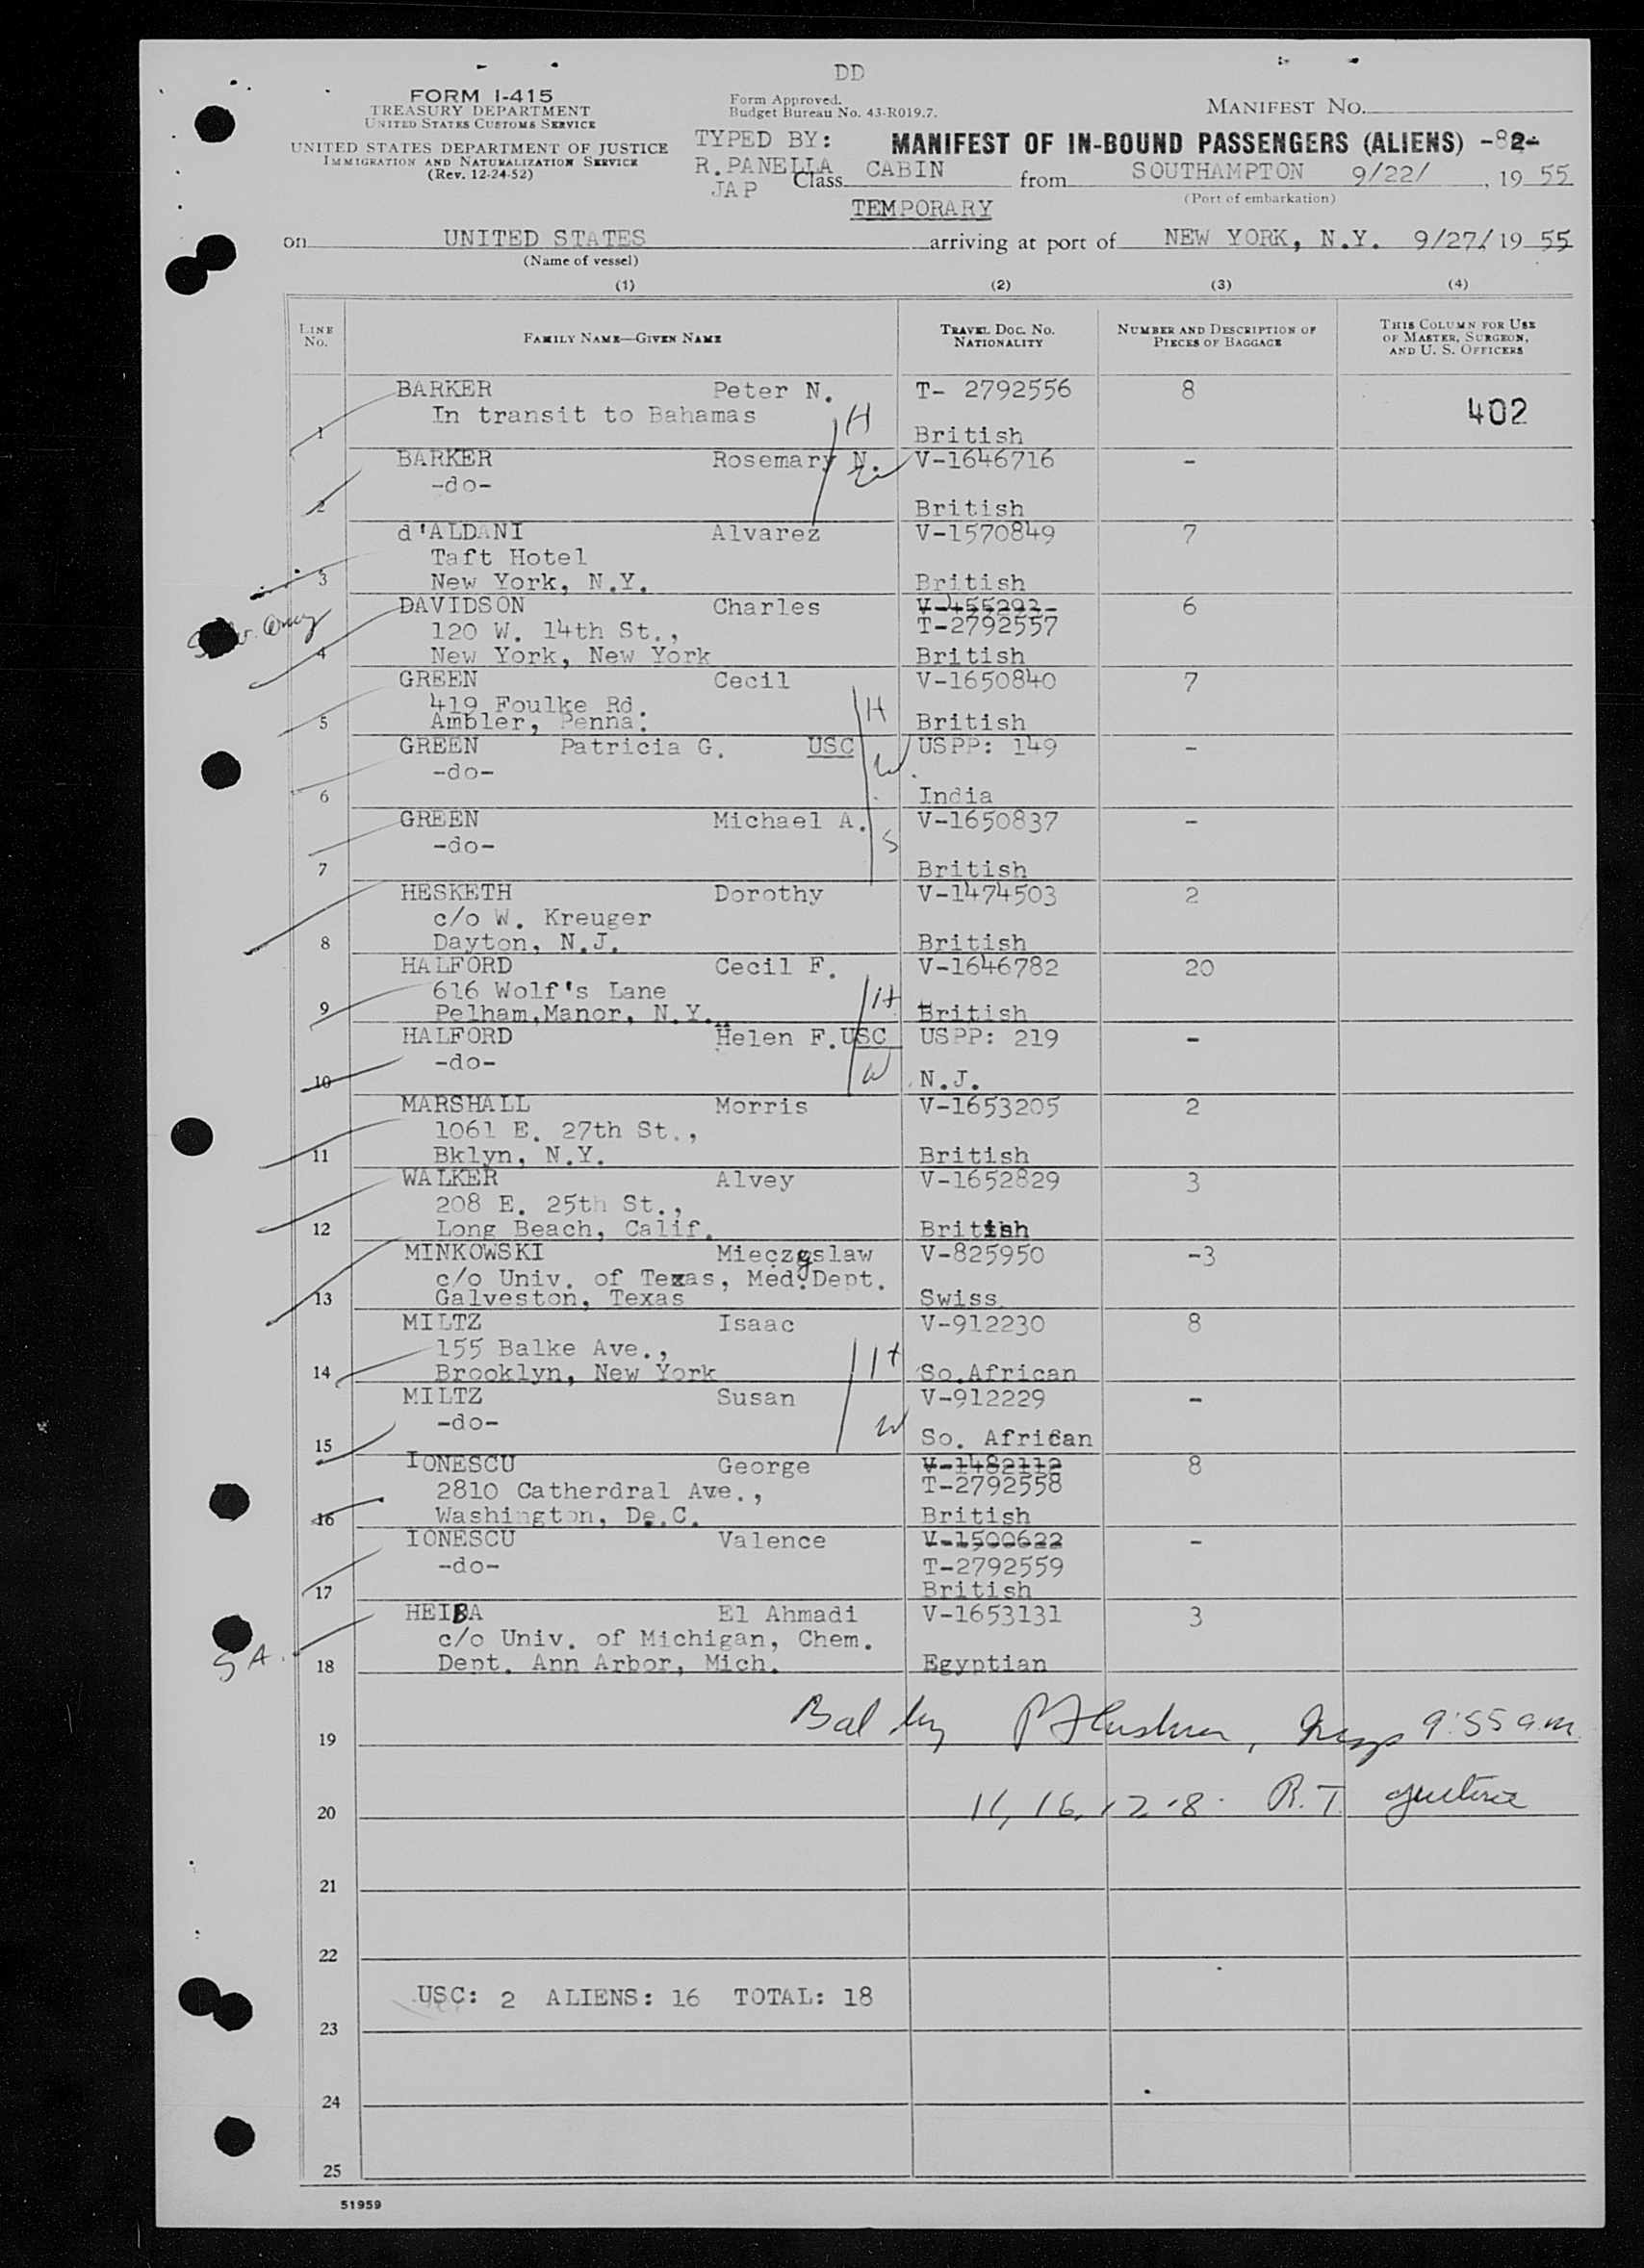 DD
FORM I-415
TREASURY DEPARTMENT
UNITED STATES CUSTOMS SERVICE
UNITED STATES DEPARTMENT OF JUSTICE
IMMIGRATION AND NATURALIZATION SERVICE
(Rev. 12-24-52)
Form Approved.
Budget Bureau No. 43-R019.7.
MANIFEST NO.
TYPED BY:
R.PANELLA
JAP
MANIFEST OF IN-BOUND PASSENGERS (ALIENS) -82-
Class CABIN from SOUTHAMPTON 9/22/, 19 55
(Port of embarkation)
TEMPORARY
on UNITED STATES arriving at port of NEW YORK, N.Y. 9/27/ 19 55
(Name of vessel)
(1) (2) (3) (4)
LINE NO.
FAMILY NAME—GIVEN NAME
TRAVEL DOC. NO. NATIONALITY
NUMBER AND DESCRIPTION OF PIECES OF BAGGAGE
THIS COLUMN FOR USE OF MASTER, SURGEON, AND U. S. OFFICERS
BARKER Peter N. T- 2792556 8
In transit to Bahamas H 402
1 British
BARKER Rosemary N. V-1646716 -
-do-
2 British
d'ALDANI Alvarez V-1570849 7
Taft Hotel
3 New York, N.Y. British
DAVIDSON Charles V-455293- 6
120 W. 14th St., T-2792557
4 New York, New York British
GREEN Cecil V-1650840 7
419 Foulke Rd. H
5 Ambler, Penna. British
GREEN Patricia G. USC USPP: 149 -
-do- W
6 India
GREEN Michael A. V-1650837 -
-do- S
7 British
HESKETH Dorothy V-1474503 2
c/o W. Kreuger
8 Dayton, N.J. British
HALFORD Cecil F. V-1646782 20
616 Wolf's Lane H
9 Pelham,Manor, N.Y. British
HALFORD Helen F.USC USPP: 219 -
-do- W
10 N.J.
MARSHALL Morris V-1653205 2
1061 E. 27th St.,
11 Bklyn, N.Y. British
WALKER Alvey V-1652829 3
208 E. 25th St.,
12 Long Beach, Calif. British
MINKOWSKI Mieczgslaw V-825950 -3
c/o Univ. of Texas, Med.Dept.
13 Galveston, Texas Swiss
MILTZ Isaac V-912230 8
155 Balke Ave., H
14 Brooklyn, New York So.African
MILTZ Susan V-912229 -
-do- W
15 So. African
IONESCU George V-1482112 8
2810 Catherdral Ave., T-2792558
16 Washington, De.C. British
IONESCU Valence V-1500622 -
-do- T-2792559
17 British
HEIBA El Ahmadi V-1653131 3
c/o Univ. of Michigan, Chem.
S A. 18 Dept. Ann Arbor, Mich. Egyptian
Bal by 9:55 a.m.
19
11, 16, 12.8. R.T.
20
21
22
USC: 2 ALIENS: 16 TOTAL: 18
23
24
25
51959